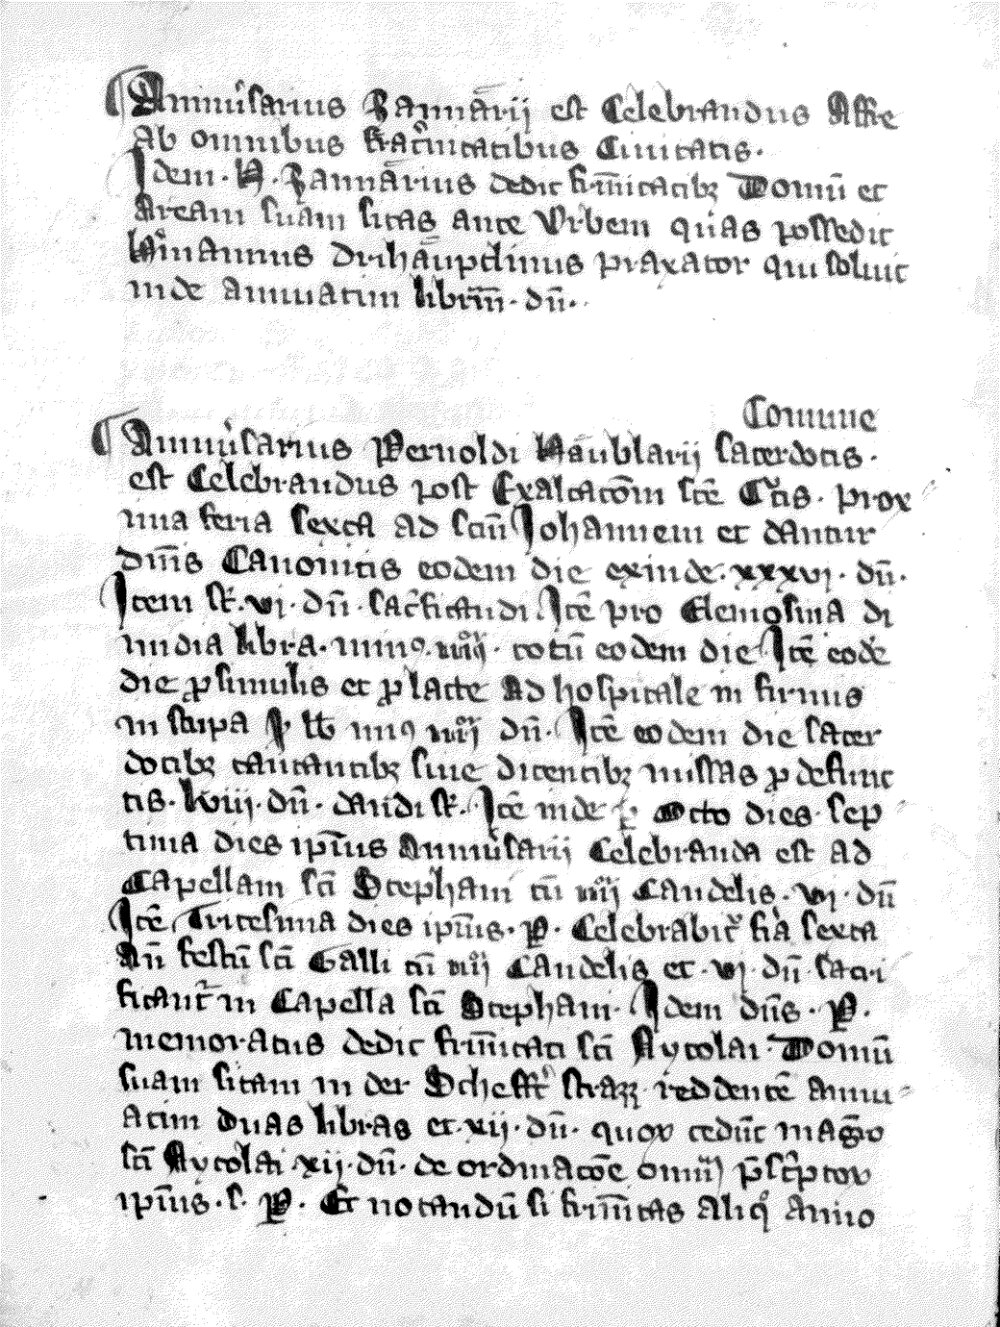 Anniu'sarius Rannarij est Celebrandus Affre
ab omnibus frat'nitatibus Ciuitatis.
Idem. H. Rannarius dedit fr̄nitatibȝ Domū et
Aream suam sitas ante Vrbem quas possedit
H'mannus praxator qui soluit
inde annuatim libram. dn̄.
Comune
Anniu'sarius Pernoldi Haūblarij sacerdotis.
est Celebrandus post Exaltatōm scē C'cis. prox
ima feria sexta ad scm̄ Johannem et dantur
dn̄is Canonicis eodem die exinde. xxxvj. dn̄.
Item st. vi. dn̄. sac'ficandi. Itē pro Elemosina di
midia libra. minꝯ. iiij. totū eodem die Itē eodē
die ꝓ simulis et ꝓ lacte ad hospitale infirmis
in stupa j lb minꝯ iiij dn̄. Itē eodem die sacer
dotibȝ cantantibȝ siue dicentibȝ missas ꝓ defunc
tis. lviij. dn̄. dandi st. Itē inde ꝑ octo dies. sep
tima dies ip̄ius Anniu'sarij Celebranda est ad
Capellam scī Stephani cū iiij Candelis. vj. dn̄
Itē Tricesima dies ip̄ius. P. Celebrabit' fia sexta
an̄ festū scī Galli cū iiij Candelis et. vj. dn̄. sacri
ficant' in Capella scī Stephani. Idem dn̄s. P.
memoratus dedit fr̄nitati scī Nycolai. Domū
suam sitam in der Scheff' strazz reddentē annu
atim duas libras et. xij. dn̄. quoꝝ cedūt mag̃ro
scī Nycolai. xij. dn̄. de ordinacōe omniū p̄sc'ptoꝝ
ip̄ius. s. P. Et notandū si fr̄nitas aliqͦ anno